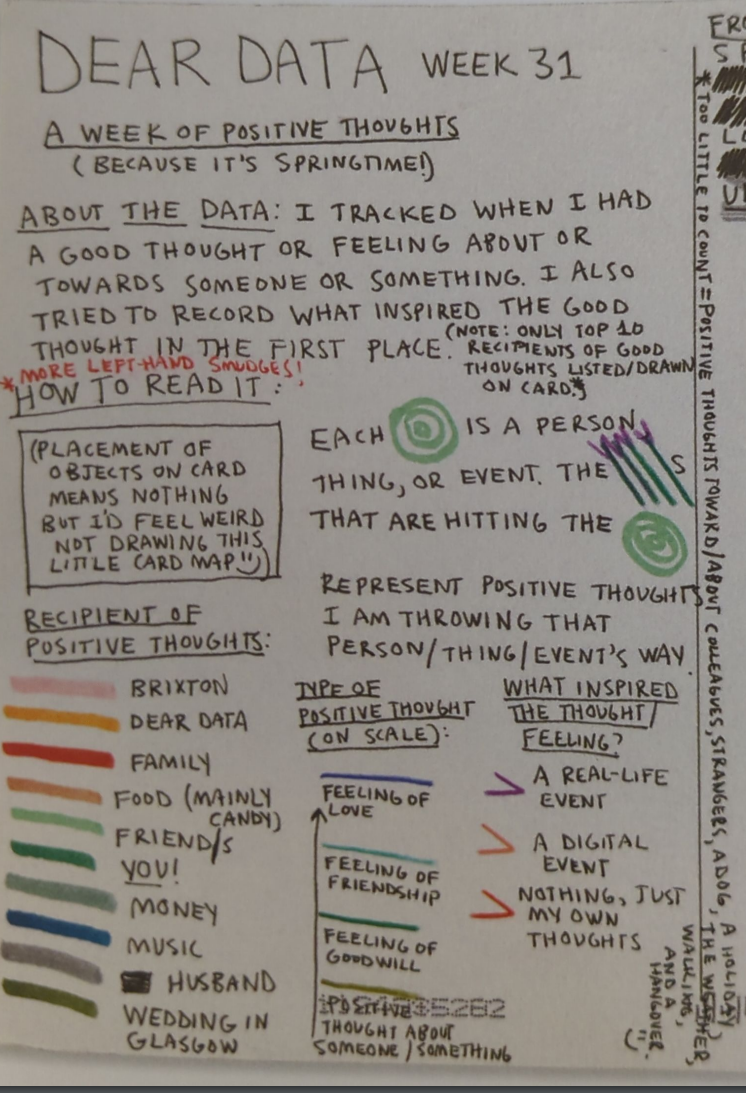 DEAR DATA WEEK 31
A WEEK OF POSITIVE THOUGHTS
(BECAUSE IT'S SPRINGTIME!)
ABOUT THE DATA: I TRACKED WHEN I HAD
A GOOD THOUGHT OR FEELING ABOUT OR
TOWARDS SOMEONE OR SOMETHING. I ALSO
TRIED TO RECORD WHAT INSPIRED THE GOOD
THOUGHT IN THE FIRST PLACE.
(NOTE: ONLY TOP 10
RECIPIENTS OF GOOD
THOUGHTS LISTED/DRAWN
ON CARD.*)
*MORE LEFT-HAND SMUDGES!
HOW TO READ IT:
(PLACEMENT OF
OBJECTS ON CARD
MEANS NOTHING
BUT I'D FEEL WEIRD
NOT DRAWING THIS
LITTLE CARD MAP)
EACH IS A PERSON,
THING, OR EVENT. THE S
THAT ARE HITTING THE
REPRESENT POSITIVE THOUGHTS
I AM THROWING THAT
PERSON/THING/EVENT'S WAY.
RECIPIENT OF
POSITIVE THOUGHTS:
BRIXTON
DEAR DATA
FAMILY
FOOD (MAINLY
CANDY)
FRIEND/S
YOU!
MONEY
MUSIC
HUSBAND
WEDDING IN
GLASGOW
TYPE OF
POSITIVE THOUGHT
(ON SCALE):
FEELING OF
LOVE
FEELING OF
FRIENDSHIP
FEELING OF
GOODWILL
POSITIVE
THOUGHT ABOUT
SOMEONE/SOMETHING
WHAT INSPIRED
THE THOUGHT/
FEELING?
A REAL-LIFE
EVENT
A DIGITAL
EVENT
NOTHING, JUST
MY OWN
THOUGHTS
*TOO LITTLE TO COUNT = POSITIVE THOUGHTS TOWARD/ABOUT COLLEAGUES, STRANGERS, A DOG, THE WEATHER,
A HOLIDAY,
WALKING,
AND A
HANGOVER.
FRO